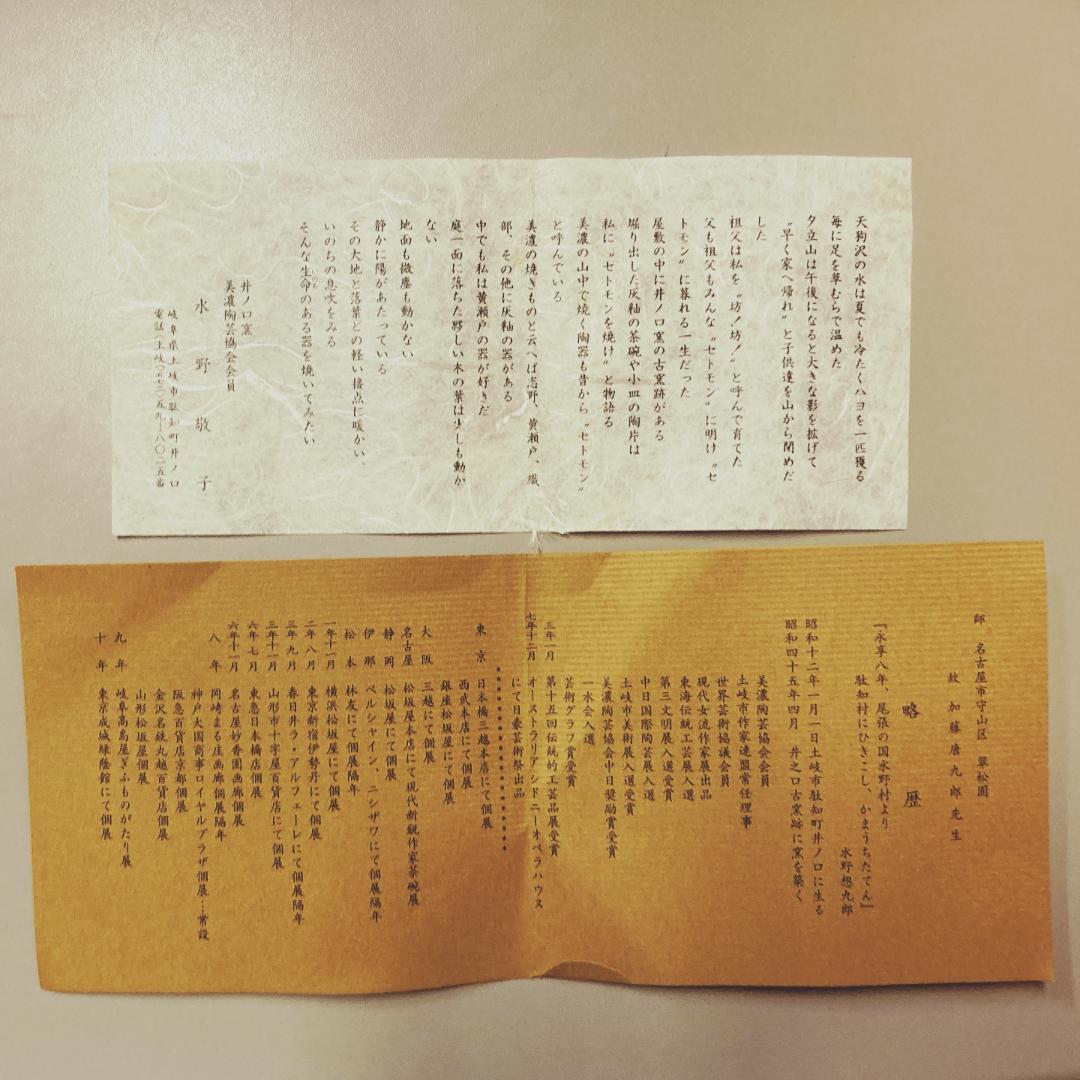 天狗沢の水は夏でも冷たくハヨを一匹獲る
毎に足を草むらで温めた
夕立山は午後になると大きな影を拡げて
〝早く家へ帰れ〟と子供達を山から閉めだ
した
祖父は私を〝坊!坊!〟と呼んで育てた
父も祖父もみんな〝セトモン〟に明け〝セ
トモン〟に暮れる一生だった
屋敷の中に井ノ口窯の古窯跡がある
堀り出した灰釉の茶碗や小皿の陶片は
私に〝セトモンを焼け〟と物語る
美濃の山中で焼く陶器も昔から〝セトモン〟
と呼んでいる
美濃の焼きものと云へば志野、黄瀬戸、織
部、その他に灰釉の器がある
中でも私は黄瀬戸の器が好きだ
庭一面に落ちた夥しい木の葉は少しも動か
ない
地面も微塵も動かない
静かに陽があたっている
その大地と落葉との軽い接点に暖かい、
いのちの息吹をみる
そんな生命のある器を焼いてみたい
井ノ口窯
美濃陶芸協会会員
水野敬子
岐阜県土岐市駄知町井ノ口
電話(土岐〇五七二)五九-八〇二五番
師 名古屋市守山区 翠松園
故 加藤唐九郎先生
略歴
『永享八年、尾張の国水野村より
駄知村にひきこし、かまうちたてん』
水野想九郎
昭和十二年一月一日土岐市駄知町井ノ口に生る
昭和四十五年四月 井之口古窯跡に窯を築く
美濃陶芸協会会員
土岐市作家連盟常任理事
世界芸術協議会員
現代女流作家展出品
東海伝統工芸展入選
第三文明展入選受賞
中日国際陶芸展入選
土岐市美術展入選受賞
美濃陶芸協会中日奨励賞受賞
一水会入選
芸術グラフ賞受賞
三年一月 第十五回伝統的工芸品展受賞
七年十二月 オーストラリアシドニーオペラハウス
にて日豪芸術祭出品
東京 日本橋三越本店にて個展
西武本店にて個展
銀座松坂屋にて個展
大阪 三越にて個展
名古屋 松坂屋本店にて現代新鋭作家茶碗展
静岡 松坂屋にて個展
伊那 ベルシャイン、ニシザワにて個展隔年
松本 林友にて個展隔年
一年十一月 横浜松坂屋にて個展
二年八月 東京新宿伊勢丹にて個展
三年九月 春日井ラ・アルフェーレにて個展隔年
三年十一月 山形市十字屋百貨店にて個展
六年七月 東急日本橋店個展
六年十一月 名古屋妙香園画廊個展
八年 岡崎まる庄画廊個展隔年
神戸大国商事ロイヤルプラザ個展…常設
阪急百貨店京都個展
金沢名鉄丸越百貨店個展
山形松坂屋個展
九年 岐阜高島屋ぎふものがたり展
十年 東京成城緑陰館にて個展